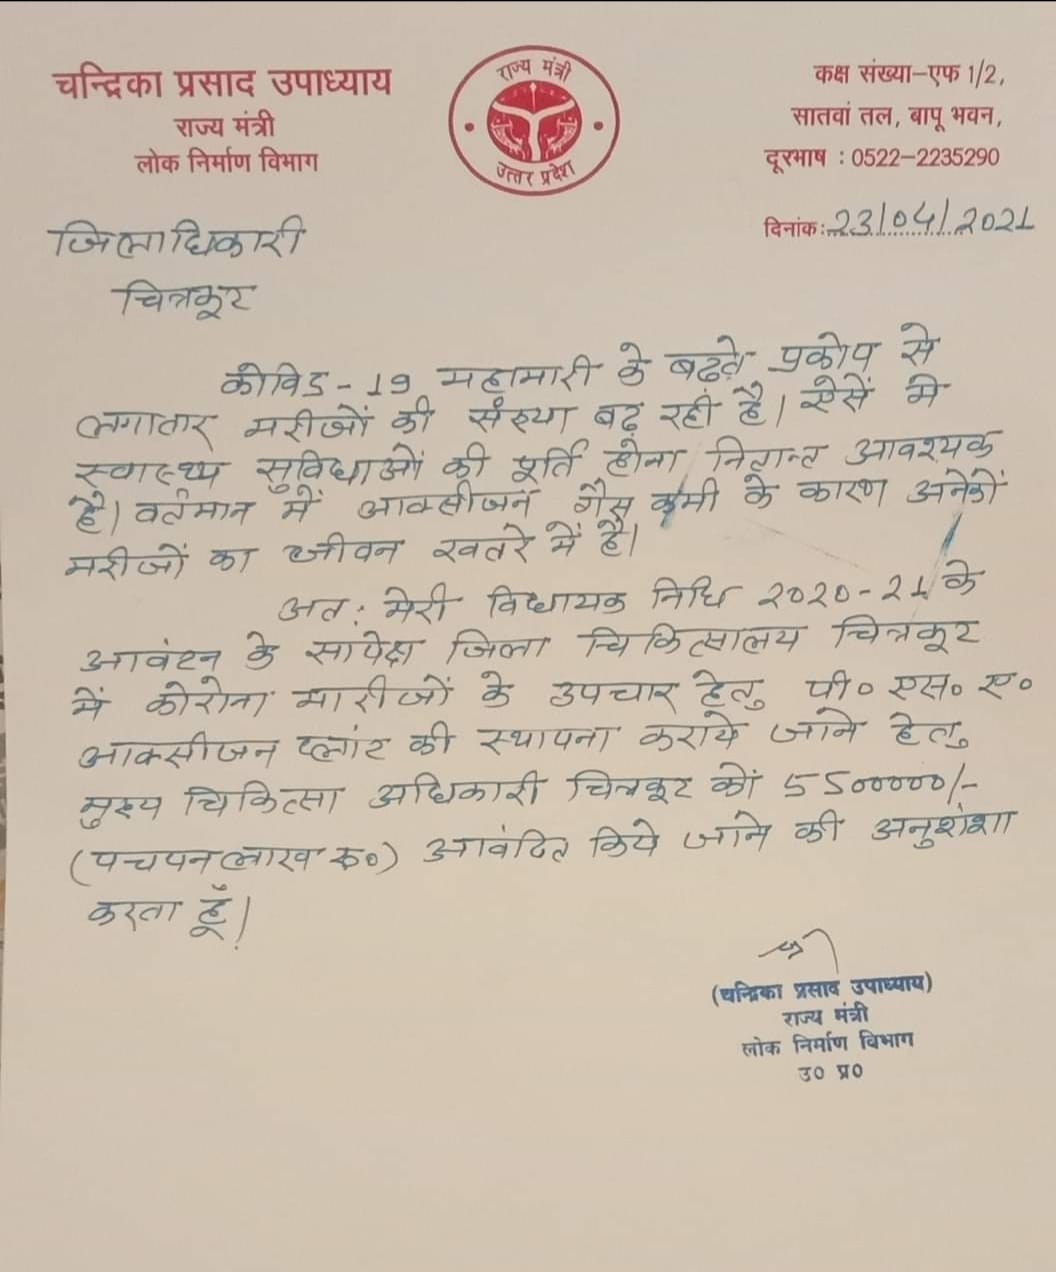 चन्द्रिका प्रसाद उपाध्याय
राज्य मंत्री
लोक निर्माण विभाग
राज्य मंत्री
उत्तर प्रदेश
कक्ष संख्या-एफ 1/2,
सातवां तल, बापू भवन,
दूरभाष : 0522-2235290
दिनांक: 23/04/2021
जिलाधिकारी
चित्रकूट
कोविड - 19 महामारी के बढ़ते प्रकोप से
लगातार मरीजों की संख्या बढ़ रही है। ऐसें मे
स्वास्थ्य सुविधाओं की पूर्ति होना नितान्त आवश्यक
है। वर्तमान में आक्सीजन गैस कमी के कारण अनेकों
मरीजों का जीवन खतरे में है।
अतः मेरी विधायक निधि 2020-21 के
आवंटन के सापेक्ष जिला चिकित्सालय चित्रकूट
में कोरोना मारीजों के उपचार हेतु पी० एस० ए०
आक्सीजन प्लांट की स्थापना कराये जाने हेतु
मुख्य चिकित्सा अधिकारी चित्रकूट कों 5500000/-
(पचपन लाख रू०) आवंटित किये जाने की अनुशंशा
करता हूँ।
(चन्द्रिका प्रसाद उपाध्याय)
राज्य मंत्री
लोक निर्माण विभाग
उ० प्र०